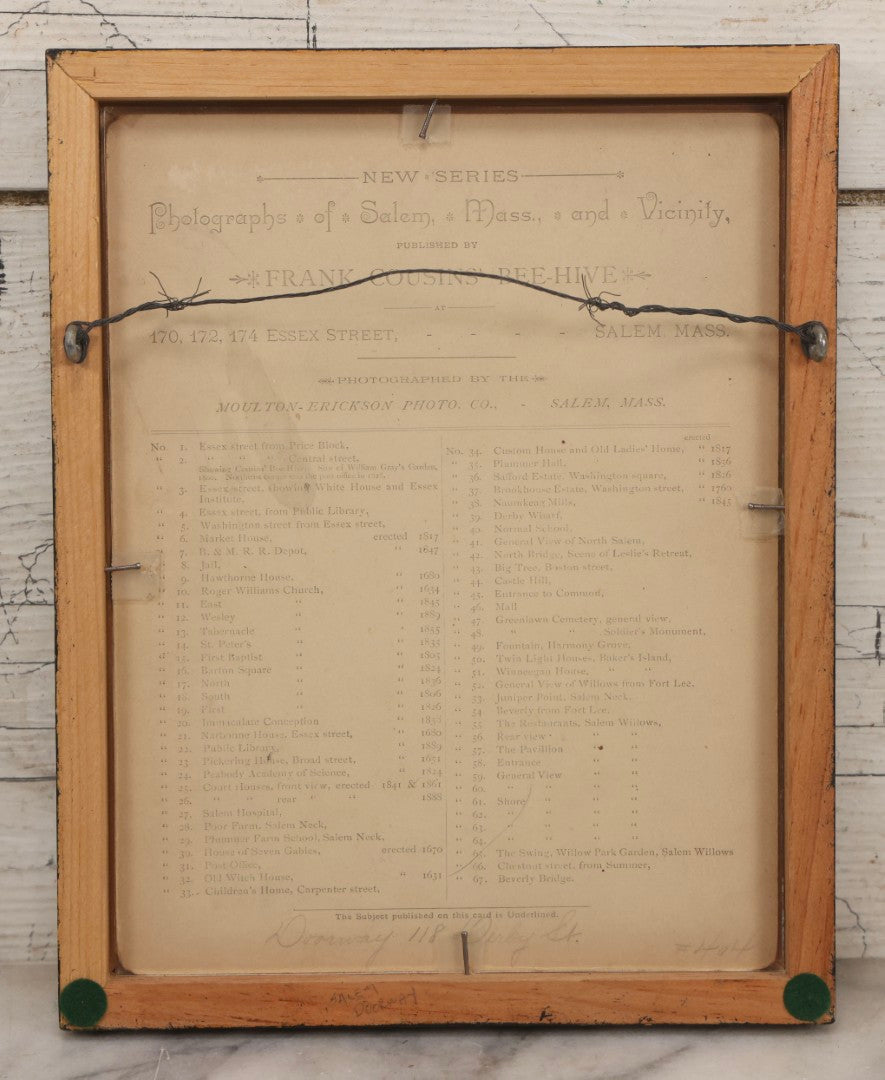 NEW SERIES
Photographs of Salem, Mass., and Vicinity,
PUBLISHED BY
FRANK COUSINS' BEE-HIVE
AT
170, 172, 174 ESSEX STREET, - - - - - SALEM, MASS.
PHOTOGRAPHED BY THE
MOULTON-ERICKSON PHOTO. CO., - SALEM, MASS.
No. 1. Essex street from Price Block,
" 2. " " " Central street,
Showing Cousins' Bee-Hive. Site of William Gray's Garden,
" 3. Essex street, showing White House and Essex
Institute,
" 4. Essex street, from Public Library,
" 5. Washington street from Essex street,
" 6. Market House, erected 1817
" 7. B. & M. R. R. Depot, " 1647
" 8. Jail,
" 9. Hawthorne House, " 1680
" 10. Roger Williams Church, " 1634
" 11. East " " 1845
" 12. Wesley " " 1889
" 13. Tabernacle " " 1855
" 14. St. Peter's " " 1833
" 15. First Baptist " " 1805
" 16. Barton Square " " 1824
" 17. North " " 1836
" 18. South " " 1806
" 19. First " " 1826
" 20. Immaculate Conception " 1858
" 21. Narbonne House, Essex street, " 1680
" 22. Public Library, " 1889
" 23. Pickering House, Broad street, " 1651
" 24. Peabody Academy of Science, " 1824
" 25. Court Houses, front view, erected 1841 & 1861
" 26. " " rear " " 1888
" 27. Salem Hospital,
" 28. Poor Farm, Salem Neck,
" 29. Plummer Farm School, Salem Neck,
" 30. House of Seven Gables, erected 1670
" 31. Post Office,
" 32. Old Witch House, " 1631
" 33. Children's Home, Carpenter street,
erected
No. 34. Custom House and Old Ladies' Home, " 1817
" 35. Plummer Hall, " 1856
" 36. Safford Estate, Washington square, " 1826
" 37. Brookhouse Estate, Washington street, " 1760
" 38. Naumkeag Mills, " 1845
" 39. Derby Wharf,
" 40. Normal School,
" 41. General View of North Salem,
" 42. North Bridge, Scene of Leslie's Retreat,
" 43. Big Tree, Boston street,
" 44. Castle Hill,
" 45. Entrance to Common,
" 46. Mall
" 47. Greenlawn Cemetery, general view,
" 48. " " Soldier's Monument,
" 49. Fountain, Harmony Grove,
" 50. Twin Light Houses, Baker's Island,
" 51. Winneegan House, " "
" 52. General View of Willows from Fort Lee,
" 53. Juniper Point, Salem Neck,
" 54. Beverly from Fort Lee,
" 55. The Restaurants, Salem Willows,
" 56. Rear view " " "
" 57. The Pavillion " "
" 58. Entrance " "
" 59. General View " "
" 60. " " "
" 61. Shore " " "
" 62. " " "
" 63. " " "
" 64. " " "
" 65. The Swing, Willow Park Garden, Salem Willows
" 66. Chestnut street, from Summer,
" 67. Beverly Bridge.
The Subject published on this card is Underlined.
Doorway 118 Derby St.
#404
SALEM
DOORWAY